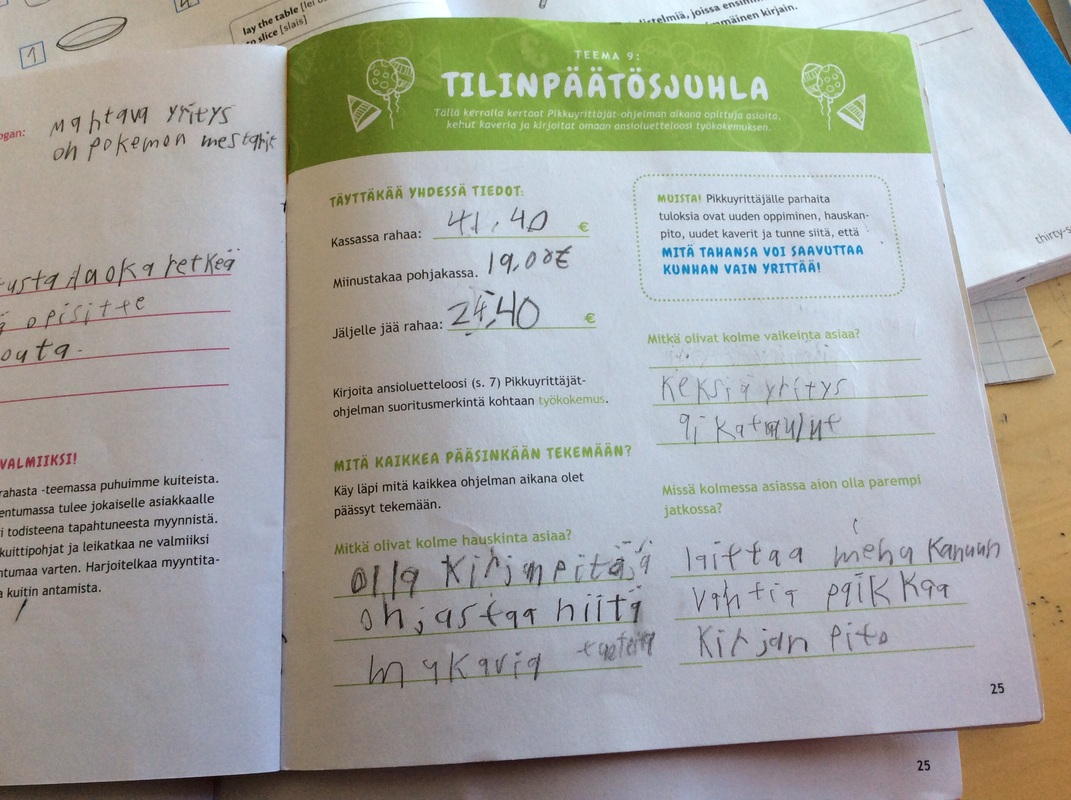 lay the table
to slice [slais]
joissa
mmäinen kirjain.
1
ogan:
mahtava yritys
on pokemon mestarit
retkeä
opisitte
outa.
VALMIIKSI!
rahasta -teemassa puhuimme kuiteista.
entumassa tulee jokaiselle asiakkaalle
i todisteena tapahtuneesta myynnistä.
kuittipohjat ja leikatkaa ne valmiiksi
ntumaa varten. Harjoitelkaa myyntita-
a kuitin antamista.
TEEMA 9:
TILINPÄÄTÖSJUHLA
Tällä kerralla kertaat Pikkuyrittäjät-ohjelman aikana opittuja asioita,
kehut kaveria ja kirjoitat omaan ansioluetteloosi työkokemuksen.
TÄYTTÄKÄÄ YHDESSÄ TIEDOT:
Kassassa rahaa: 41,40 €
Miinustakaa pohjakassa. 19,00€
Jäljelle jää rahaa: 24,40 €
Kirjoita ansioluetteloosi (s. 7) Pikkuyrittäjät-
ohjelman suoritusmerkintä kohtaan työkokemus.
MITÄ KAIKKEA PÄÄSINKÄÄN TEKEMÄÄN?
Käy läpi mitä kaikkea ohjelman aikana olet
päässyt tekemään.
Mitkä olivat kolme hauskinta asiaa?
olla kirjanpitäjä
ohjastaa niitä
mukavia
MUISTA! Pikkuyrittäjälle parhaita
tuloksia ovat uuden oppiminen, hauskan-
pito, uudet kaverit ja tunne siitä, että
MITÄ TAHANSA VOI SAAVUTTAA
KUNHAN VAIN YRITTÄÄ!
Mitkä olivat kolme vaikeinta asiaa?
keksiä yritys
Missä kolmessa asiassa aion olla parempi
jatkossa?
laittaa mehu kanuun
vahtia paikkaa
kirjan pito
25
25